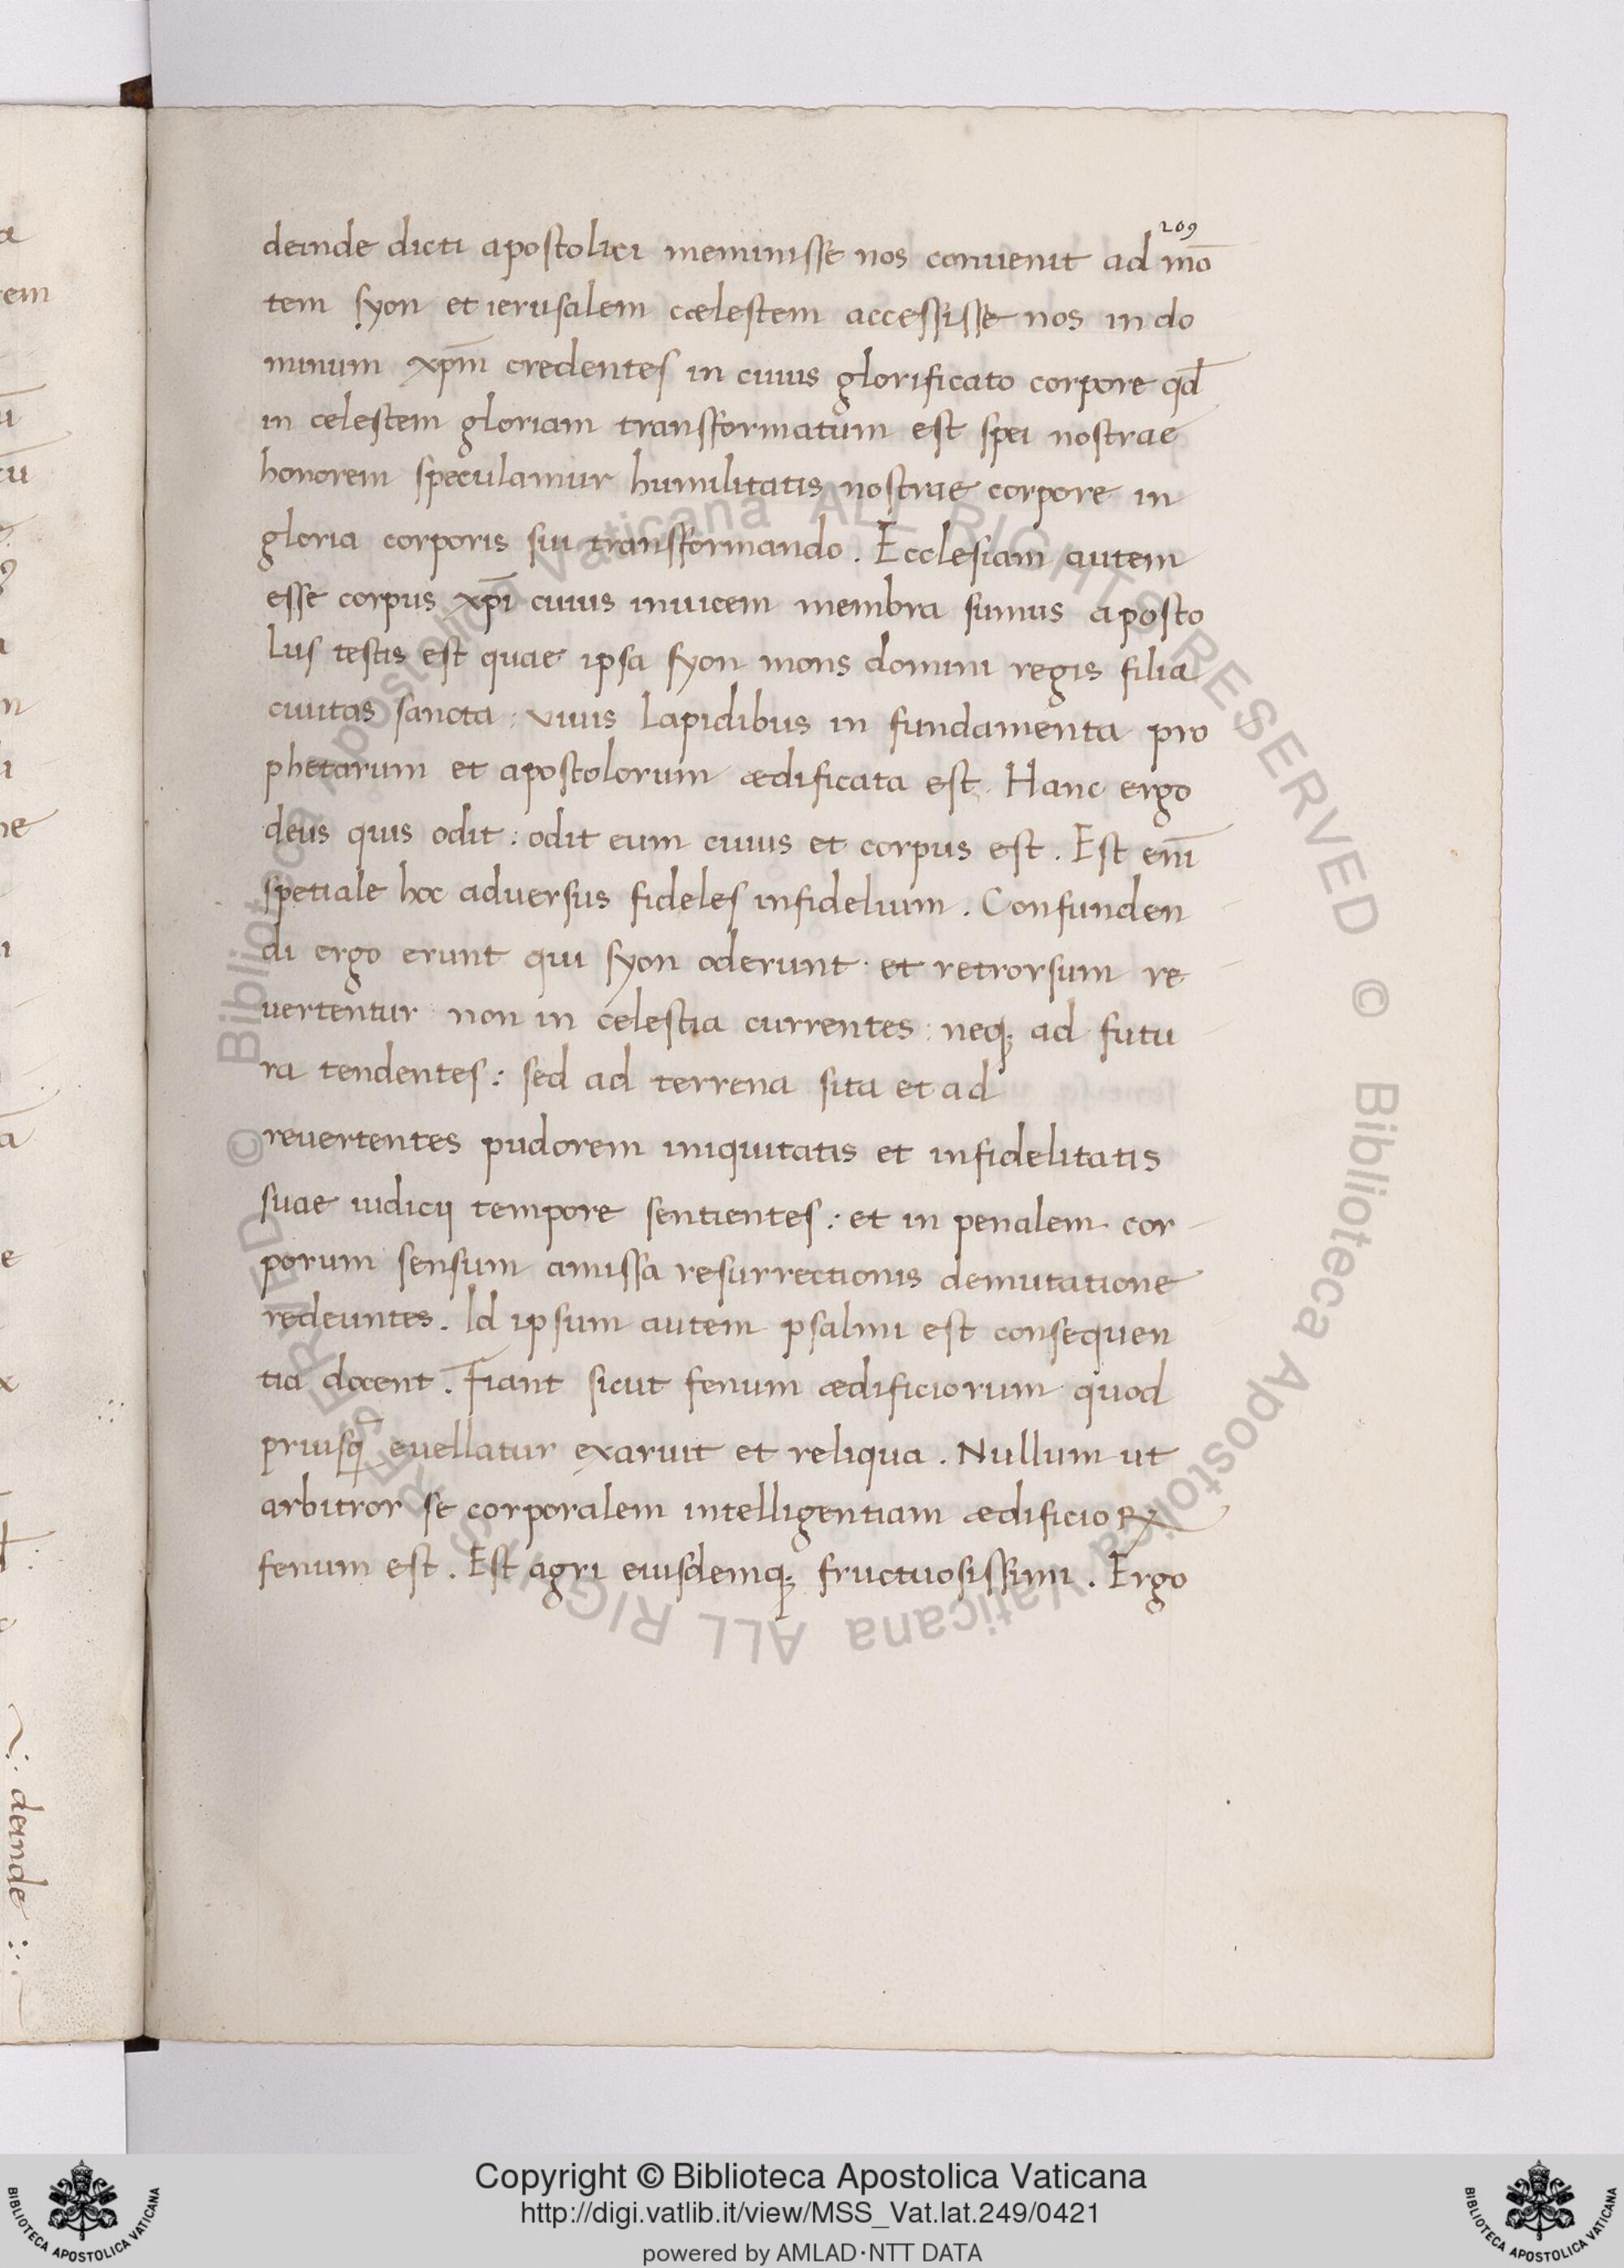 209
deinde dicti apostolici meminisse nos convenit ad mō
tem syon et ierusalem cælestem accessisse nos in do
minum xpm̄ credentes in cuius glorificato corpore qd̄
in celestem gloriam transformatum est spei nostrae
honorem speculamur humilitatis nostrae corpore in
gloria corporis sui transformando. Ecclesiam autem
esse corpus xpī cuius invicem membra sumus aposto
lus testis est quae ipsa syon mons domini regis filia
civitas sancta: vivis lapidibus in fundamenta pro
phetarum et apostolorum ædificata est. Hanc ergo
deus quis odit: odit eum cuius et corpus est. Est enī
spetiale hoc adversus fideles infidelium. Confunden
di ergo erunt qui syon oderunt· et retrorsum re
vertentur non in celestia currentes: neq; ad futu
ra tendentes: sed ad terrena sita et ad
revertentes pudorem iniquitatis et infidelitatis
suae iudicij tempore sentientes: et in penalem cor
porum sensum amissa resurrectionis demutatione
redeuntes. Id ipsum autem psalmi est consequen
tia docent. Fiant sicut fenum ædificiorum quod
priusq̄ evellatur exaruit et reliqua. Nullum ut
arbitror se corporalem intelligentiam ædificioꝝ
fenum est. Est agri eiusdemq; fructuosissimi. Ergo
deinde
© Biblioteca Apostolica Vaticana ALL RIGHTS RESERVED © Biblioteca Apostolica Vaticana ALL RIGHTS RESERVED
Copyright © Biblioteca Apostolica Vaticana
http://digi.vatlib.it/view/MSS_Vat.lat.249/0421
powered by AMLAD·NTT DATA
BIBLIOTECA APOSTOLICA VATICANA
BIBLIOTECA APOSTOLICA VATICANA